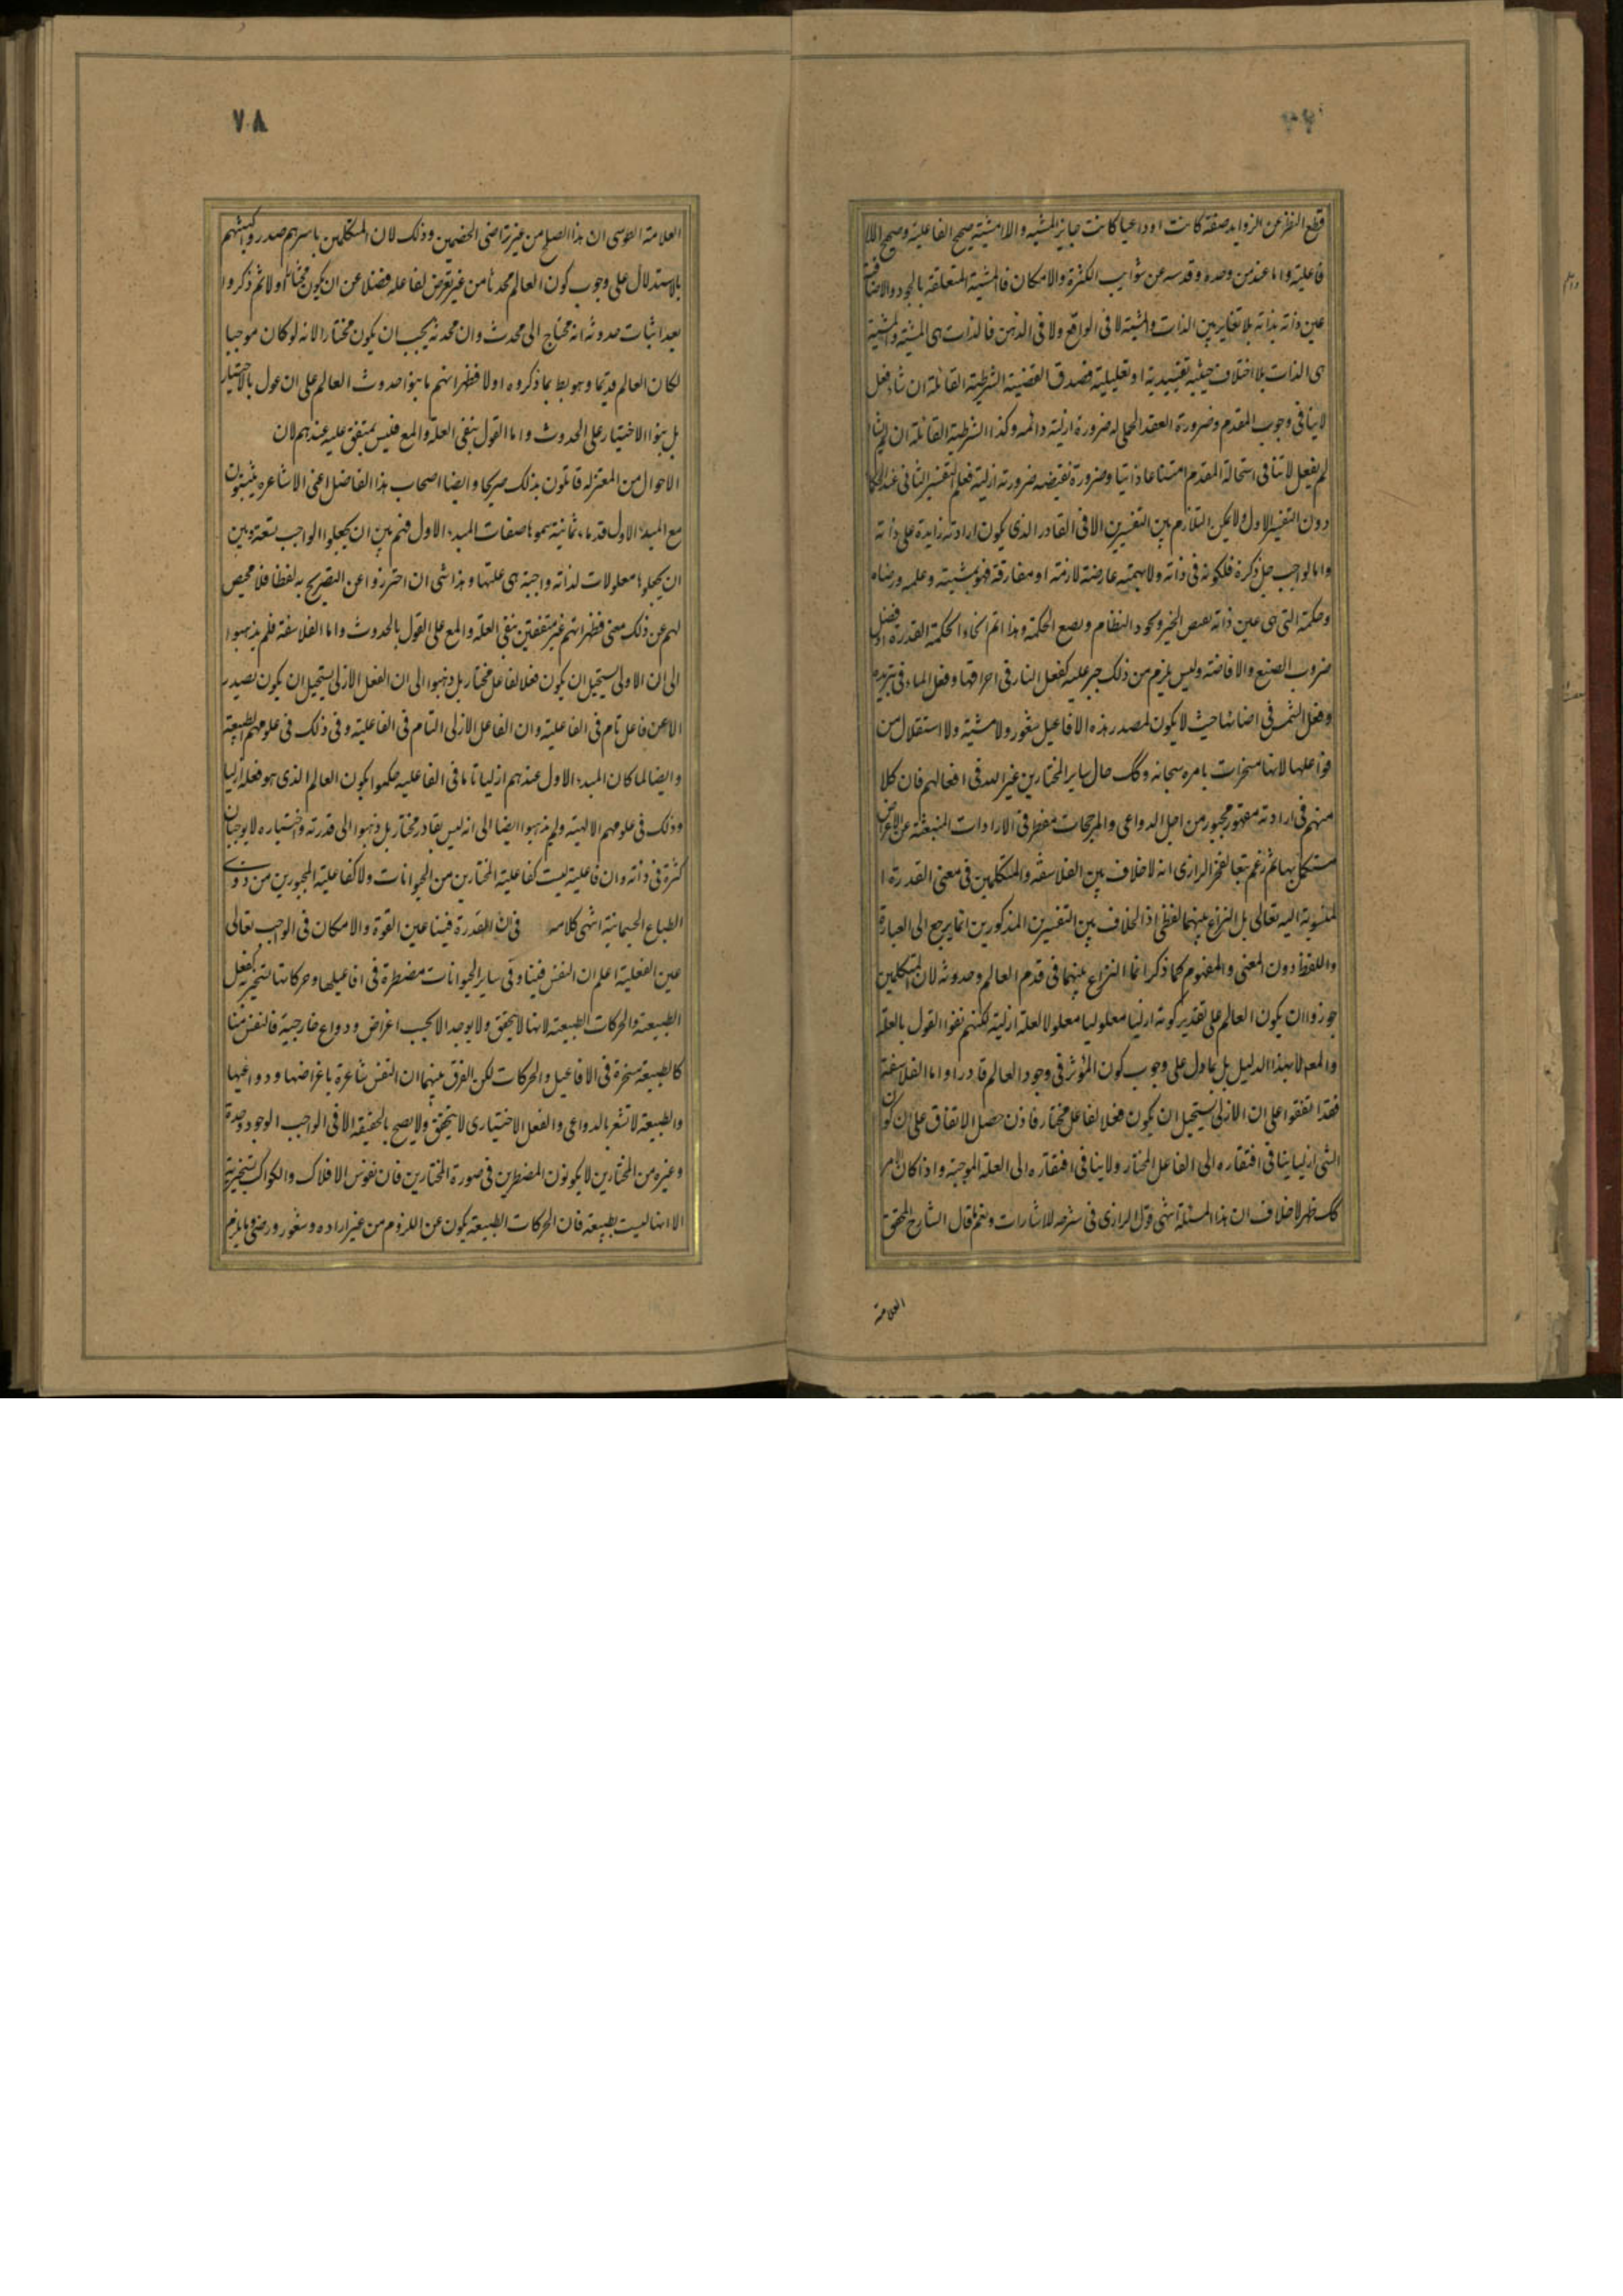 قطع النظر عن الزوايد صفة كانت او داعيا كانت جايز المشية والامشية صحيح الفاعلية وصحيح اللا
فاعلية واما عند من وحده وقدسه عن شوايب الكثرة والامكان فالمشية المتعلقة بالجود والافاضة
عين ذاته بذاته بلا تغاير بين الذات والمشية لا فى الواقع ولا فى الذهن فالذات هى المشية والمشية
هى الذات بلا اختلاف حيثية تقييدية او تعليلية فصدق القضية الشرطية القائلة ان شاء فعل
لا ينافى وجوب المقدم وضرورة العقد الحملى له ضرورة ازلية دائمه وكذا الشرطية القائلة ان لم يشا
لم يفعل لا تنافى استحالة المقدم امتناعا ذاتيا وضرورة نقيضه ضرورته ازلية فعلم التفسير الثانى عند الحكما
دون التفسير الاول ولا يمكن التلازم بين التفسيرين الا فى القادر الذى يكون ارادته زايدة على ذاته
واما الواجب جل ذكره فلكونه فى ذاته ولا بمهيته عارضة لازمة او مفارقة فهو بمشيته وعلمه ورضاه
وحكمة التى هى عين ذاته يفيض الخير ويجود النظام ويصنع الحكمة وهذا اتم انحاء الحكمة القدرة وافضل
ضروب الصنع والافاضة وليس يلزم من ذلك جبر عليه كفعل النار فى احراقها وفعل الماء فى تبريده
وفعل الشمس فى اضائتها حيث لا يكون لمصدر هذه الافاعيل شعور ولا مشية ولا استقلال من
فواعلها لانها مسخرات بامره سبحانه وكك حال ساير المختارين غير الله فى افعالهم فان كلا
منهم فى ارادته مقهور مجبور من اجل الدواعى والمرجحات مضطر فى الارادات المنبعثة عن الاغراض
مستكمل بها ثم زعم تبعا لفخر الرازى انه لا خلاف بين الفلاسفه والمتكلمين فى معنى القدرة ا
لمنسوبة اليه تعالى بل النزاع بينهما لفظى اذ الخلاف بين التفسيرين المذكورين انما يرجع الى العبارة
واللفظ دون المعنى والمفهوم كما ذكر انما النزاع بينهما فى قدم العالم وحدوثه لان المتكلمين
جوزوا ان يكون العالم على تقدير كونه ازليا معلولا لعلة ازلية لكنهم نفوا القول بالعلة
والمعلول لا بهذا الدليل بل بما دل على وجوب كون المؤثر فى وجود العالم قادرا واما الفلاسفة
فقد اتفقوا على ان الازلى يستحيل ان يكون فعلا لفاعل مختار فاذن حصل الاتفاق على ان كون
الشى ازليا ينافى افتقاره الى الفاعل المختار ولا ينافى افتقاره الى العلة الموجبة واذا كان الامر
كك ظهر لا خلاف ان هذا المسئلة انتهى قول الرازى فى شرحه للاشارات ونعم ما قال الشارح المحقق
العلامة
٧٨
العلامة الطوسى ان هذا الصلح من غير تراضى الخصمين وذلك لان المتكلمين باسرهم صدروا كتبهم
بالاستدلال على وجوب كون العالم محدثا من غير تعرض لفاعله فضلا عن ان يكون مختارا او لا ثم ذكروا
بعد اثبات حدوثه انه محتاج الى محدث وان محدثه يجب ان يكون مختارا لانه لو كان موجبا
لكان العالم قديما وهو بط بما ذكروه اولا فظهر انهم ما بنوا حدوث العالم على القول بالاختيار
بل بنوا الاختيار على الحدوث واما القول بنفى العلة والمع فليس بمتفق عليه عندهم لان
الاحوال من المعتزله قائلون بذلك صريحا وايضا اصحاب هذا الفاضل اعنى الاشاعره يثبتون
مع المبدء الاول قدماء ثمانية سموها صفات المبدء الاول فهم بين ان يجعلوا الواجب تسعة وبين
ان يجعلوها معلولات لذاته واجبة هى علتها وهذا شى ان احترزوا عن التصريح به لفظا فلا محيص
لهم عن ذلك معنى فظهر انهم غير متفقين بنفى العلة والمع على القول بالحدوث واما الفلاسفة فلم يذهبوا
الى ان الاولى يستحيل ان يكون فعلا لفاعل مختار بل ذهبوا الى ان الفعل الازلى يستحيل ان يكون يصدر
الا عن فاعل تام فى الفاعلية وان الفاعل الازلى التام فى الفاعلية وفى ذلك فى علومهم الطبيعية
وايضا لما كان المبدء الاول عندهم ازليا تاما فى الفاعليه حكموا بكون العالم الذى هو فعله ازليا
وذلك فى علومهم الالهية ولم يذهبوا ايضا الى انه ليس بقادر مختار بل ذهبوا الى قدرته واختياره لا يوجبان
كثرة فى ذاته وان فاعلية ليست كفاعلية المختارين من الحيوانات ولا كفاعلية المجبورين من ذوى
الطبايع الجسمانية انتهى كلامه فى ان القدرة فينا عين القوة والامكان فى الواجب تعالى
عين الفعلية اعلم ان النفس فينا وفى ساير الحيوانات مضطرة فى افاعيلها وحركاتها تسخيرية كفعل
الطبيعة والحركات الطبيعة لانها لا يتحقق ولا يوجد الا بحسب اغراض ودواع خارجية فالنفس منا
كالطبيعة مسخرة فى الافاعيل والحركات لكن الفرق بينهما ان النفس شاعرة باغراضها ودواعيها
والطبيعة لا تشعر بالدواعى والفعل الاختيارى لا يتحقق ولا يصح بالحقيقة الا فى الواجب الوجود وحده
وغيره من المختارين لا يكونون المضطرين فى صورة المختارين فان نفوس الافلاك والكواكب تسخيرية
الا انها ليست بطبيعة فان الحركات الطبيعة يكون عن اللزوم من غير اراده وشعور ورضى وما يلزم